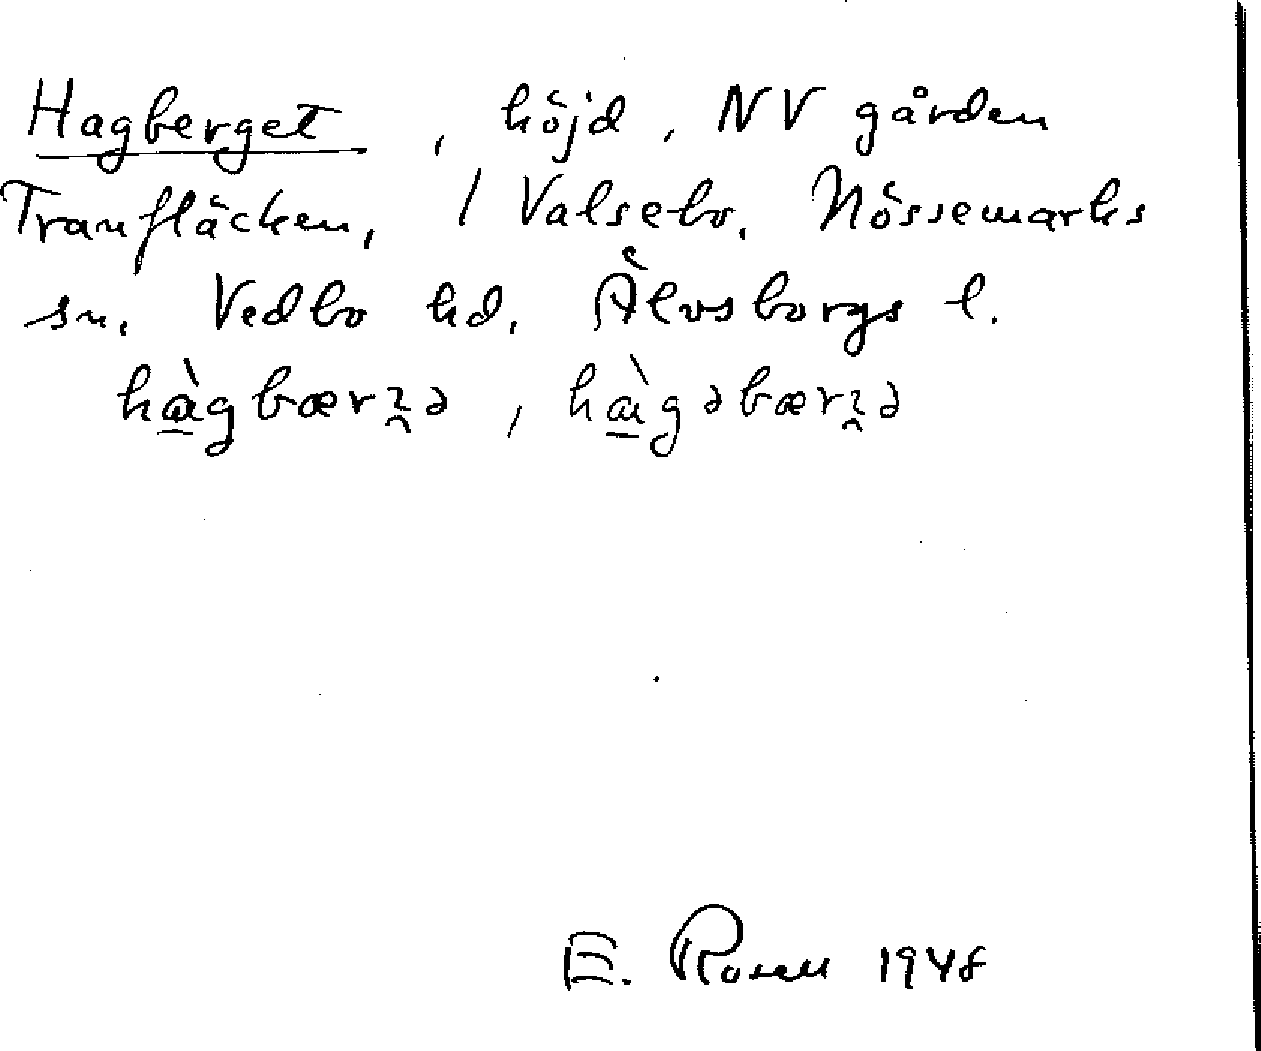 Hagberget, höjd, NV gården
Tranfläcken, / Valsebo. Nössemarks
sn. Vedbo hd. Älvsborgs l.
hàgbærʒə, hàgəbærʒə
E. Rosell 1948